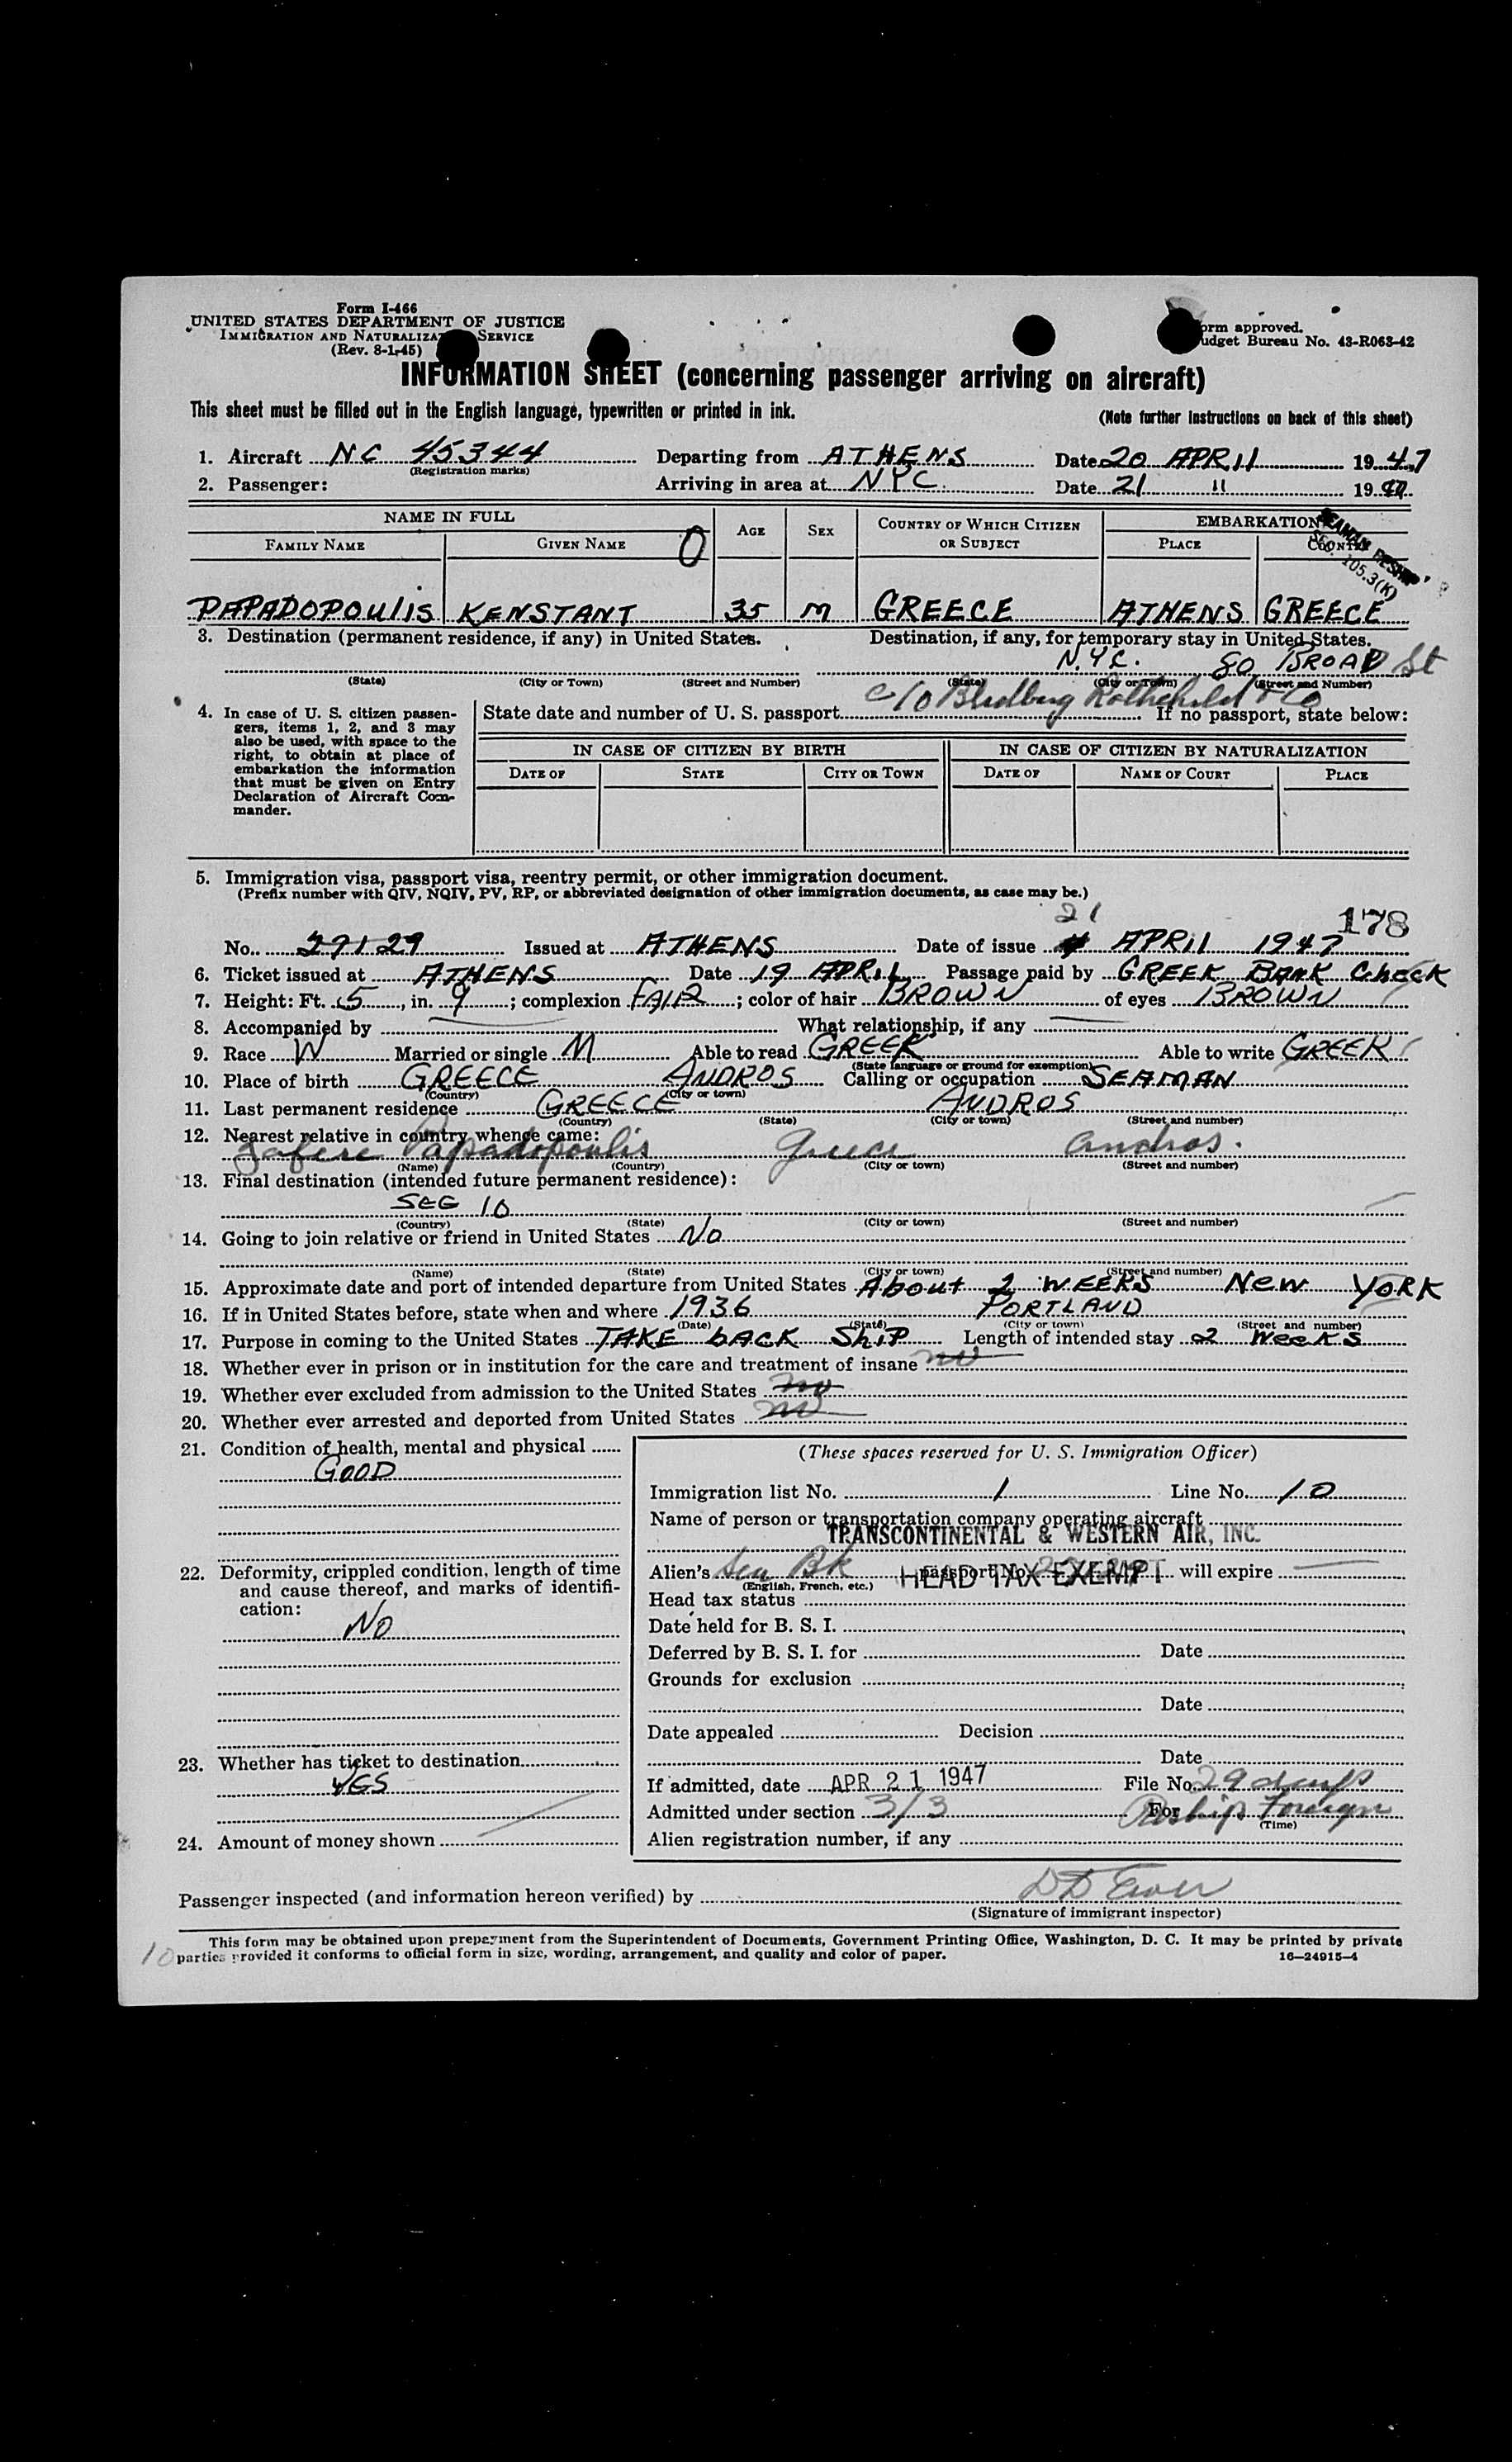 Form I-466
UNITED STATES DEPARTMENT OF JUSTICE
IMMIGRATION AND NATURALIZATION SERVICE
(Rev. 8-1-45)
orm approved.
udget Bureau No. 43-R063-42
INFORMATION SHEET (concerning passenger arriving on aircraft)
This sheet must be filled out in the English language, typewritten or printed in ink.
(Note further instructions on back of this sheet)
1. Aircraft NC 45344 Departing from ATHENS Date 20 APRIl 1947
(Registration marks)
2. Passenger: Arriving in area at NYC. Date 21 " 1947
NAME IN FULL AGE SEX COUNTRY OF WHICH CITIZEN OR SUBJECT EMBARKATION
FAMILY NAME GIVEN NAME O PLACE COUNTRY
SEAMAN RESHIP
SEC. 105.3(K)
PAPADOPOUlIS KENSTANT 35 M GREECE ATHENS GREECE
3. Destination (permanent residence, if any) in United States. Destination, if any, for temporary stay in United States.
N.Y.C. 80 BROAD St
(State) (City or Town) (Street and Number) (State) (City or Town) (Street and Number)
c/o Rothchild & Co
4. In case of U. S. citizen passengers, items 1, 2, and 3 may also be used, with space to the right, to obtain at place of embarkation the information that must be given on Entry Declaration of Aircraft Commander.
State date and number of U. S. passport If no passport, state below:
IN CASE OF CITIZEN BY BIRTH IN CASE OF CITIZEN BY NATURALIZATION
DATE OF STATE CITY OR TOWN DATE OF NAME OF COURT PLACE
5. Immigration visa, passport visa, reentry permit, or other immigration document.
(Prefix number with QIV, NQIV, PV, RP, or abbreviated designation of other immigration documents, as case may be.)
21
178
No. 29129 Issued at ATHENS Date of issue APRIl 1947
6. Ticket issued at ATHENS Date 19 APRIL Passage paid by GREEK BANK Check
7. Height: Ft. 5, in. 9; complexion FAIR; color of hair BROWN of eyes BROWN
8. Accompanied by What relationship, if any
9. Race W Married or single M Able to read GREEK Able to write GREEK
(State language or ground for exemption)
10. Place of birth GREECE ANDROS Calling or occupation SEAMAN
(Country) (City or town)
11. Last permanent residence GREECE ANDROS
(Country) (State) (City or town) (Street and number)
12. Nearest relative in country whence came:
Papadopoulis Greece Andros.
(Name) (Country) (City or town) (Street and number)
13. Final destination (intended future permanent residence):
SEG 10
(Country) (State) (City or town) (Street and number)
14. Going to join relative or friend in United States No
(Name) (State) (City or town) (Street and number)
15. Approximate date and port of intended departure from United States About 2 WEEKS NeW YORK
16. If in United States before, state when and where 1936 PORTLAND
(Date) (State) (City or town) (Street and number)
17. Purpose in coming to the United States TAKE bACK ShiP Length of intended stay 2 WeekS
18. Whether ever in prison or in institution for the care and treatment of insane no
19. Whether ever excluded from admission to the United States no
20. Whether ever arrested and deported from United States no
21. Condition of health, mental and physical
GOOD
22. Deformity, crippled condition, length of time and cause thereof, and marks of identification:
NO
23. Whether has ticket to destination
YES
24. Amount of money shown
(These spaces reserved for U. S. Immigration Officer)
Immigration list No. 1 Line No. 10
Name of person or transportation company operating aircraft
TRANSCONTINENTAL & WESTERN AIR, INC.
Alien's Sea Bk passport No. will expire
(English, French, etc.)
HEAD TAX EXEMPT
Head tax status
Date held for B. S. I.
Deferred by B. S. I. for Date
Grounds for exclusion
Date
Date appealed Decision
Date
If admitted, date APR 21 1947 File No. 29 days
Admitted under section 3/3 For Reship Foreign
(Time)
Alien registration number, if any
Passenger inspected (and information hereon verified) by
(Signature of immigrant inspector)
This form may be obtained upon prepayment from the Superintendent of Documents, Government Printing Office, Washington, D. C. It may be printed by private
10 parties provided it conforms to official form in size, wording, arrangement, and quality and color of paper. 16—24915-4